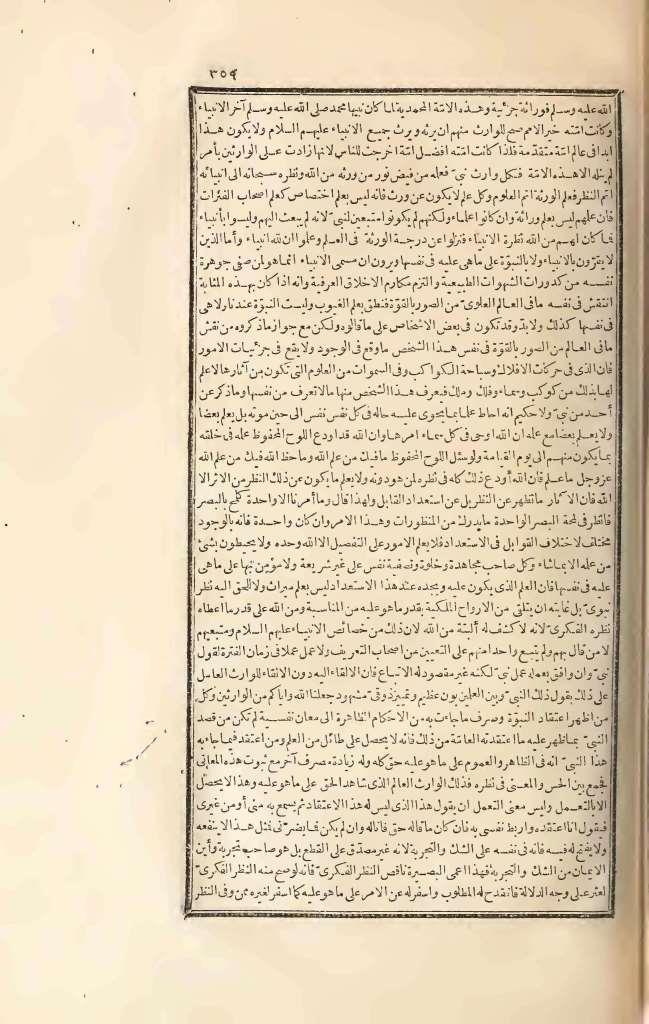 ٣٥٩
الله عليه وسلم فوراثة جزئية وهذه الامة المحمدية لما كان نبيها محمد صلى الله عليه وسلم آخر الانبياء
وكانت امته خير الامم صح للوارث منهم ان يرثه ويرث جميع الانبياء عليهم السلام ولا يكون هذا
ابدا فى عالم امة متقدمة فلذا كانت امته افضل امة اخرجت للناس لانها زادت على الوارثين بأمر
لم ينله الا هذه الامة فكل وارث نبىّ فعله من فيض نور من ورثه من الله ونظره سبحانه الى انبيائه
اتم النظر فعلم الورثة اتم العلوم وكل علم لا يكون عن ورث فانه ليس بعلم اختصاص كعلم اصحاب الفترات
فان علمهم ليس بعلم وراثة وان كانوا علماء ولكنهم لم يكونوا متبعين لنبىّ لانه لم يبعث اليهم وليسوا بأنبياء
فما كان لهم من الله نظرة الانبياء فنزلوا عن درجة الورثة فى العلم وعلموا ان لله انبياء وأما الذين
لا يقرّون بالانبياء ولا بالنبوّة على ما هى عليه فى نفسها ويرون ان مسمى الانبياء انما هو لمن صفى جوهرة
نفسه من كدورات الشهوات الطبيعية والتزم مكارم الاخلاق العرفية وانه اذا كان بهذه المثابة
انتقش فى نفسه ما فى العالم العلوى من الصور بالقوّة فنطق بعلم الغيوب وليست النبوّة عندنا ولا هى
فى نفسها كذلك ولا بدّ وقد تكون فى بعض الاشخاص على ما قالوه ولكن مع جواز ما ذكروه من نقش
ما فى العالم من الصور بالقوّة فى نفس هذا الشخص ما وقع فى الوجود ولا يقع فى جزئيات الامور
فان الذى فى حركات الافلاك وسباحة الكواكب وفى السموات من العلوم التى تكون من آثارها لا علم
لها بذلك من كوكب وسماء وفلك وملك فيعرف هذا الشخص منها ما لا تعرف من نفسها وما ذكر عن
أحد من نبىّ ولا حكيم انه احاط علما بما يحوى عليه حاله فى كل نفس نفس الى حين موته بل يعلم بعضا
ولا يعلم بعضا مع علمه ان الله اوحى فى كل سماء امرها وان الله قد اودع اللوح المحفوظ علمه فى خلقه
بما يكون منهم الى يوم القيامة ولو سئل اللوح المحفوظ ما فيك من علم الله وما حفظ الله فيك من علم الله
عز وجل ما علم فان الله أودع ذلك كله فى نظره لمن هو دونه ولا يعلم ما يكون عن ذلك النظر من الاثر الا
الله فان الاسمار ما تظهر عن النظر بل عن استعداد القابل ولهذا قال وما أمرنا الا واحدة كلمح بالبصر
فانظر فى لمحة البصر الواحدة ما يدرك من المنظورات وهذا الامر وان كان واحدة فانه بالوجود
مختلف لاختلاف القوابل فى الاستعداد فلا يعلم الامور على التفصيل الا الله وحده ولا يحيطون بشئ
من علمه الا بما شاء وكل صاحب مجاهدة وخلوة وتصفية نفس على غير شريعة ولا مؤمن بها على ما هى
عليه فى نفسها فان العلم الذى يكون عليه ويجده عند هذا الاستعداد ليس بعلم ميراث ولا للحق اليه نظر
نبوىّ بل غايته ان يتلقى من الارواح الملكية بقدر ما هو عليه من المناسبة ومن الله على قدر ما اعطاه
نظره الفكرىّ لانه لا كشف له ألبتة من الله لان ذلك من خصائص الانبياء عليهم السلام ومتبعيهم
لا من قال بهم ولم يتبع واحدا منهم على التعيين من اصحاب التعريف ولا عمل عملا فى زمان الفترة لقول
نبىّ وان وافق بعمله عمل نبىّ لكنه غير مقصود له الاتباع فان الالقاء اليه دون الالقاء للوارث العامل
على ذلك بقول ذلك النبىّ وبين العلمين بون عظيم وتمييز ذوقىّ مشهود جعلنا الله واياكم من الوارثين وكل
من اظهر اعتقاد النبوّة وصرف ما جاءت به من الاحكام الظاهرة الى معان نفسية لم تكن من قصد
النبىّ بما ظهر عليه ما اعتقدته العامّة من ذلك فانه لا يحصل على طائل من العلم ومن اعتقد فيما جاء به
هذا النبىّ انه فى الظاهر والعموم على ما هو عليه حق كله وله زيادة مصرف آخر مع ثبوت هذه المعانى
فجمع بين الحس والمعنى فى نظره فذلك الوارث العالم الذى شاهد الحق على ما هو عليه وهذا لا يحصل
الا بالتعمل وليس معنى التعمل ان يقول هذا الذى ليس له هذا الاعتقاد ثم يسمع به منى أو من غيرى
فيقول انا اعتقده واربط نفسى به فان كان ما قاله حق فاناله وان لم يكن فما يضرّنى فمثل هذا لا ينفعه
ولا يفتح له فيه فانه فى نفسه على الشك والتجربة لانه غير مصدّق على القطع بل هو صاحب تجربة وأين
الايمان من الشك والتجربة فهذا اعمى البصيرة ناقص النظر الفكرىّ فانه لو صح منه النظر الفكرىّ
لعثر على وجه الدلالة فانقدح له المطلوب واسفر له عن الامر على ما هو عليه كما اسفر لغيره ممن وفى النظر